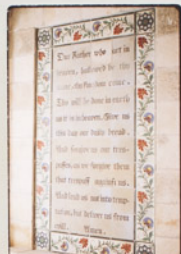 Our Father who art in
heaven, hallowed be thy
name, thy kingdom come.
Thy will be done in earth
as it is in heaven. Give us
this day our daily bread.
And forgive us our tres-
passes, as we forgive them
that trespass against us.
And lead us not into temp-
tation, but deliver us from
evil. Amen.